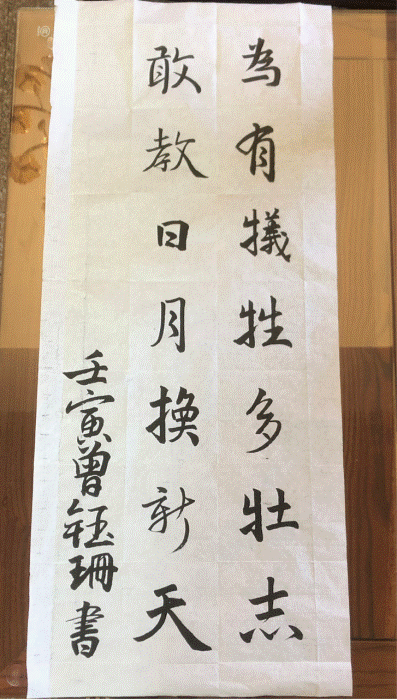 為有犠牲多壮志
敢教日月換新天
壬寅曾鈺珊書